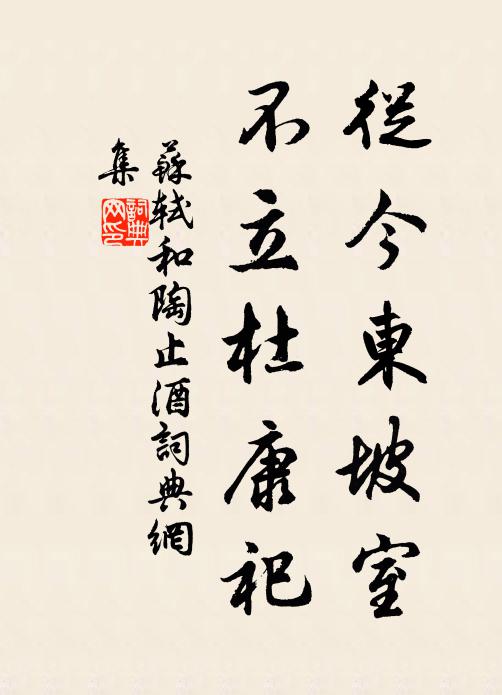 從今東坡室
不立杜康祀
蘇軾和陶止酒詞典網
集
詞典
网印